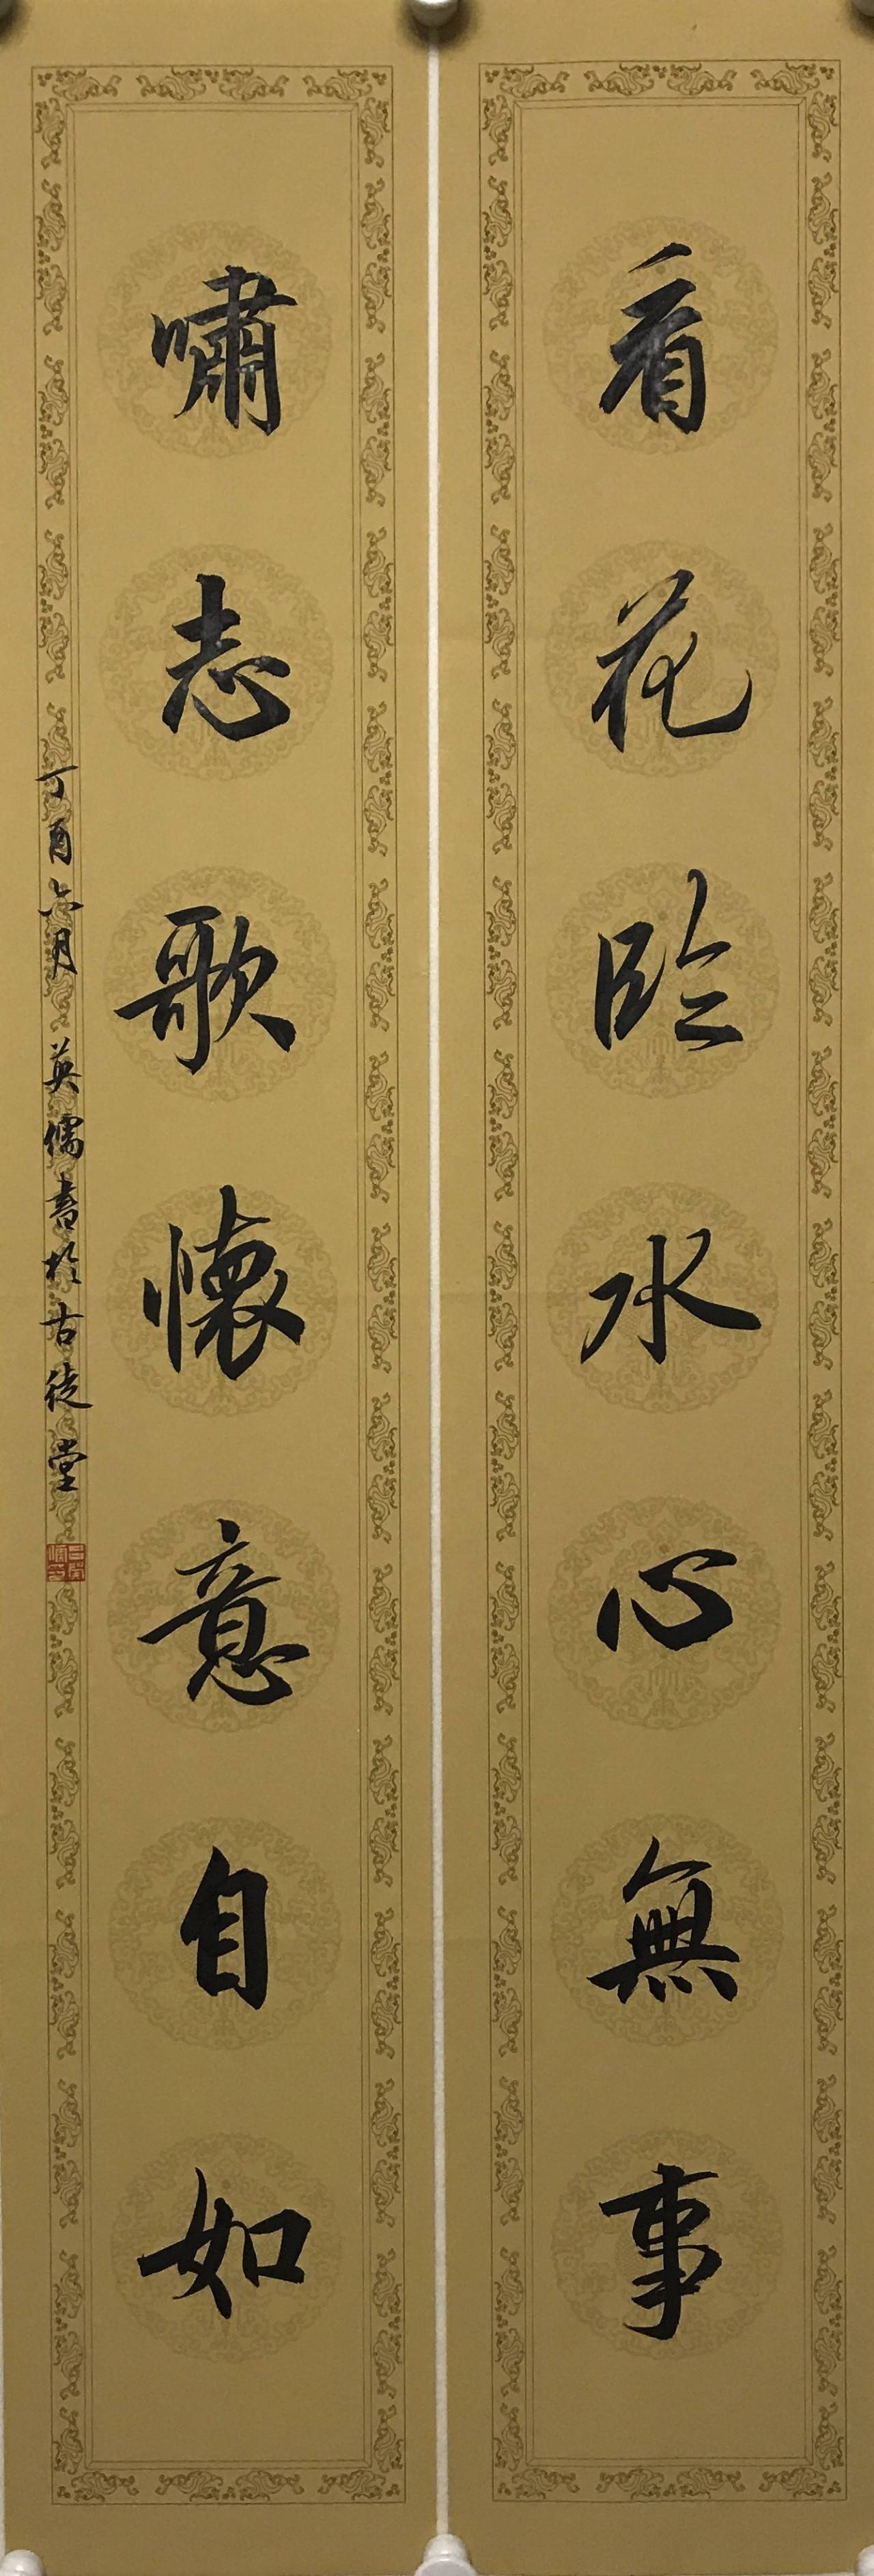 看花臨水心無事
嘯志歌懷意自如
丁酉六月 英儒書於古徒堂